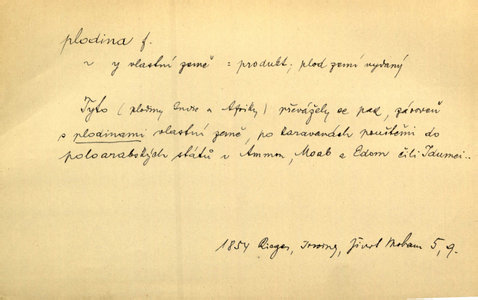 plodina f.
~ y vlastní země = produkt, plod zemí vydaný
Tyto (plodiny Indie a Afriky) převážely se pak, zároveň
s plodinami vlastní země, po karavanách pouštěmi do
poloarabských států v Ammon, Moab a Edom čili Idumei..
1854 Rieger, Irwing, Život Moham 5, 9.